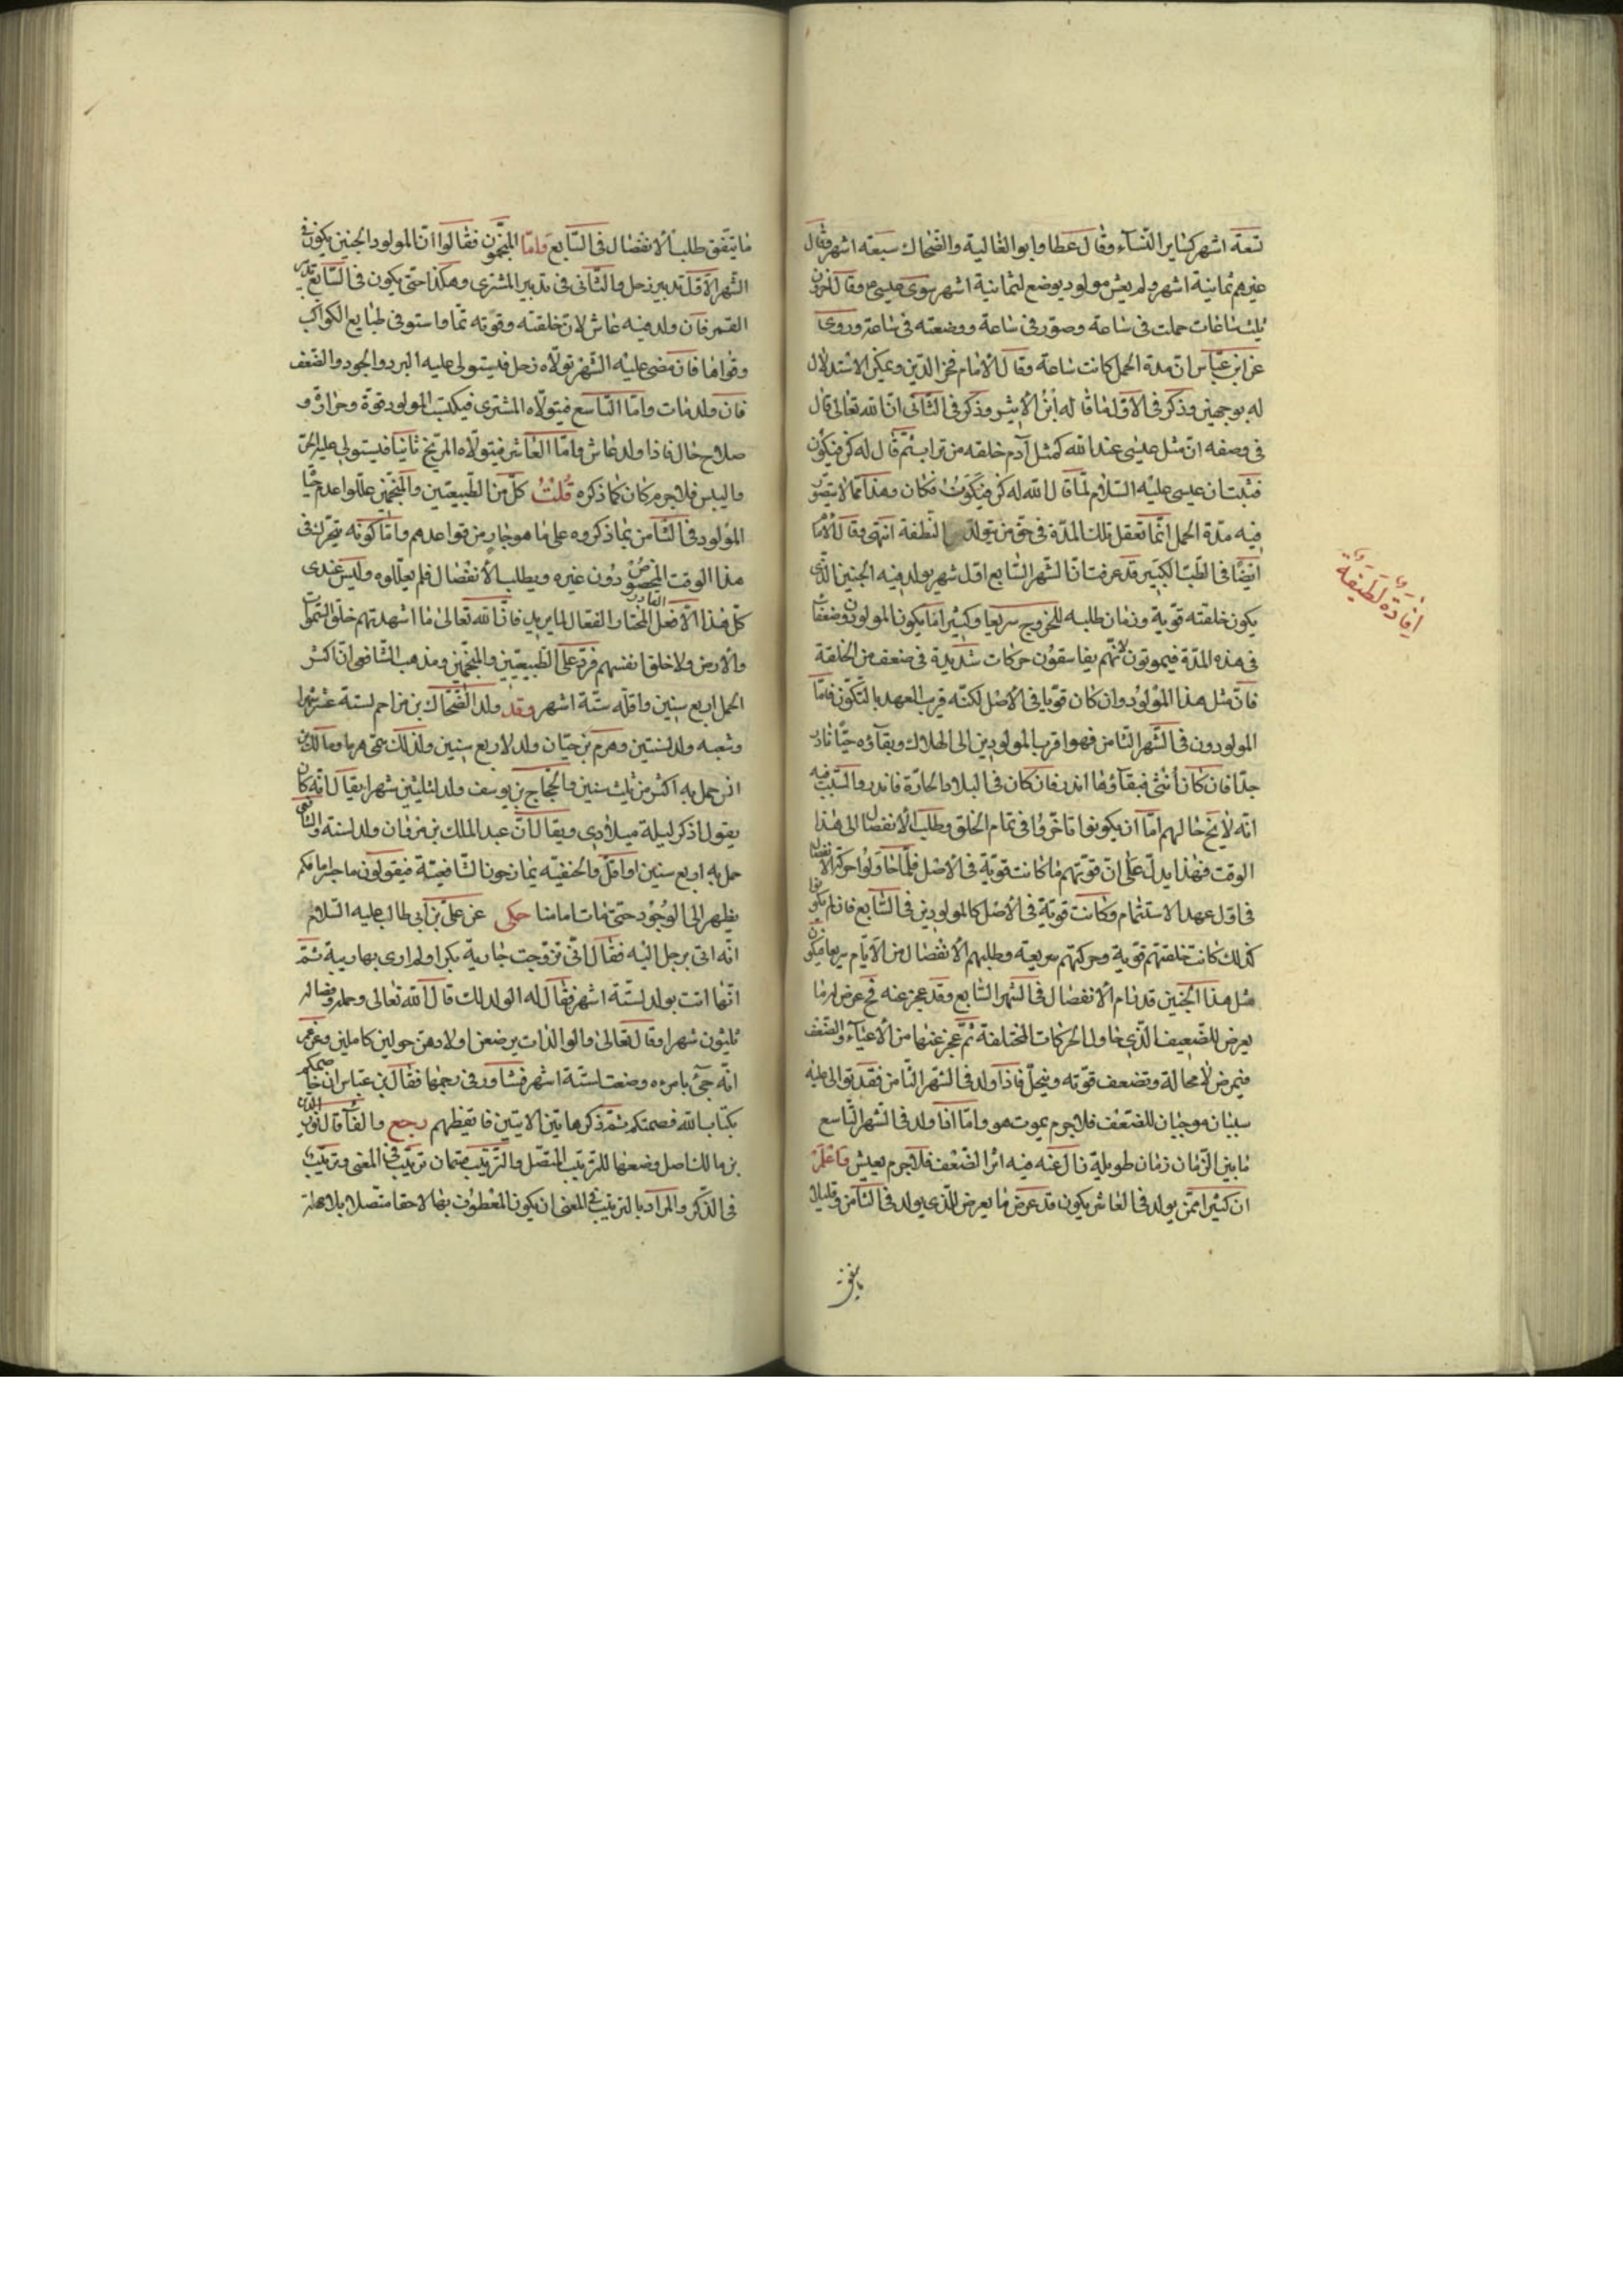 تسعة اشهر كساير النسآء وقال عطا وابو العالية والضحاك سبعة اشهر وقال
غيرهم ثمانية اشهر ولم يعش مولود يوضع لثمانية اشهر سوى عيسى ع وقال اخرون
ثلث ساعات حملت فى ساعة وصور فى ساعة ووضعته فى ساعة وروى
عن ابن عباس ان مدة الحمل كانت ساعة وقال الامام فخر الدين ويمكن الاستدلال
له بوجهين وذكر فى الاول ما قاله وذكر فى الثانى ان الله تعالى قال
فى وصفه ان مثل عيسى عند الله كمثل آدم خلقه من تراب ثم قال له كن فيكون
فثبت ان عيسى عليه السلام لما قال الله له كن فيكون فكان وهذا مما لا يتصور
فيه مدة الحمل انما تعقل تلك المدة فى حق من يتولد النطفة انتهى وقال الامام
ايضا فى الطب الكبير قد عرفت ان الشهر السابع اول شهر يولد فيه الجنين الذى
يكون خلقته قوية وزمان طلبه للخروج سريعا وكثيرا ما يكون المولودون ضعفا
فى هذه المدة فيموتون لانهم يقاسون حركات شديدة فى ضعف من الخلقة
فان مثل هذا المولود وان كان قويا فى الاصل لكنه قريب العهد بالتكون فاما
المولودون فى الشهر الثامن فهو اقرب المولودين الى الهلاك وبقآؤه حيا نادر
جدا فان كان أنثى فبقآؤها اندر فان كان فى البلاد الحارة فاندر والسبب فيه
انه لا يخ حالهم اما ان يكونوا تأخروا فى تمام الخلق وطلب الانفصال الى هذا
الوقت فهذا يدل على ان قوتهم ما كانت قوية فى الاصل فلما حاولوا حركة الانفصال
فى اول عهد الاستتمام وكانت قوية فى الاصل كالمولودين فى السابع فان لم يكونوا
كذلك كانت خلقتهم قوية وحركتهم سريعة وطلبهم الانفصال من الايام سريعا فيكون
مثل هذا الجنين قد رام الانفصال فى الشهر السابع وقد عجز عنه فح عرض له ما
يعرض للضعيف الذى حاول الحركات المختلفة ثم عجز عنها من الاعيآء والضعف
فيمرض لا محالة وتضعف قوته وينحل فاذا ولد فى الشهر الثامن فقد توالى عليه
سببان موجبان للضعف فلا جرم يموت هو واما اذا ولد فى الشهر التاسع
ما بين الزمان زمان طويلة زال عنه فيه اثر الضعف فلا جرم يعيش واعلم
ان كثيرا ممن يولد فى العاشر يكون قد عرض ما يعرض للذى يولد فى الثامن وقليلا
ما يتفق
افادة لطيفة
ما يتفق طلب الانفصال فى التاسع واما المنجمون فقالوا ان المولود الجنين يكون فى
الشهر الاول تدبير زحل والثانى فى تدبير المشترى وهكذا حتى يكون فى السابع تدبير
القمر فان ولد فيه عاش لان خلقته وقوته تما واستوفى طبايع الكواكب
وقواها فان مضى عليه الشهر تولاه زحل فيستولى عليه البرد والجمود والضعف
فان ولد مات واما التاسع فيتولاه المشترى فيكسب المولود قوة وحرارة و
صلاح حال فاذا ولد عاش واما العاشر فيتولاه المريخ ثانيا فيستولى عليه الحر
واليبس فلا جرم كان كما ذكره قلت كل من الطبيعيين والمنجمين عللوا عدم حياة
المولود فى الثامن بما ذكروه على ما هو جار من قواعدهم واما كونه يتحرك فى
هذا الوقت المخصوص دون غيره ويطلب الانفصال فلم يعللوه وليس عندى
كل هذا الا فعل القادر المختار الفعال لما يريد فان الله تعالى ما اشهدتهم خلق السموات
والارض ولا خلق انفسهم فرد على الطبيعيين والمنجمين ومذهب الشافعى ان اكثر
الحمل اربع سنين واقله ستة اشهر وقد ولد الضحاك بن مزاحم لستة عشر شهرا
وشعبه ولد لسنتين وهرم بن حيان ولد لاربع سنين ولذلك سمى هرما ومالك بن
انس حمل به اكثر من ثلث سنين والحجاج بن يوسف ولد لثلثين شهرا يقال انه كان
يقول اذكر ليلة ميلادى ويقال ان عبد الملك بن مروان ولد لستة والشافعى
حمل به اربع سنين او اقل والحنفيه يمازحون الشافعية فيقولون ما جسر امامكم
يظهر الى الوجود حتى مات امامنا حكى عن على بن أبى طالب عليه السلام
انه اتى برجل اليه فقال انى تزوجت جارية بكرا ولم ارى بها ريبة ثم
انها اتت بولد لستة اشهر فقال له الولد لك قال الله تعالى وحمله وفصاله
ثلثون شهرا وقال تعالى والوالدات يرضعن اولادهن حولين كاملين وعن عمر
انه جئ بامرءه وضعت لستة اشهر فشاور فى رجمها فقال بن عباس ان خاصمتكم
بكتاب الله فصمتكم ثم ذكر هاتين الايتين فاتقظهم رجع والفآ قال نور الدين
بن مالك اصل وضعها للترتيب المتصل والترتيب قسمان ترتيب فى المعنى وترتيب
فى الذكر والمراد بالترتيب فى المعنى ان يكون المعطوف بها لاحقا متصلا بلا مهلة